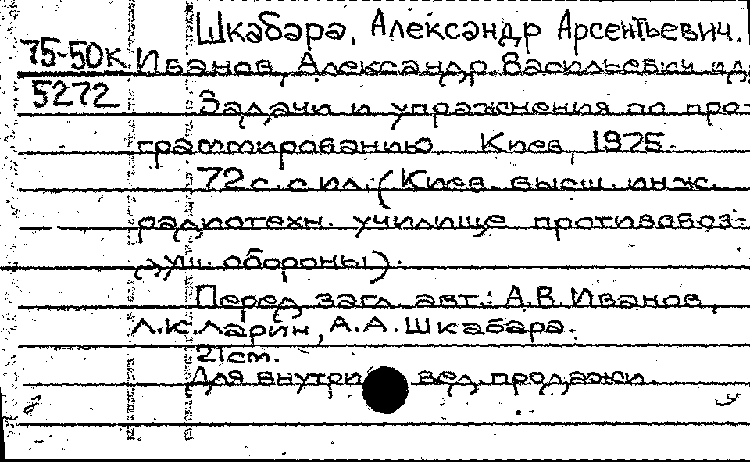 Шкабара, Александр Арсентьевич.
75-50к Иванов, Александр Васильевич и др.
5272 Задачи и упражнения по про-
граммированию. Киев, 1975.
72 с. с ил. (Киев. высш. инж.
радиотехн. училище противовоз-
душ. обороны).
Перед загл. авт.: А.В. Иванов,
Л.К. Ларин, А.А. Шкабара.
21 см.
Для внутри вед. продажи.